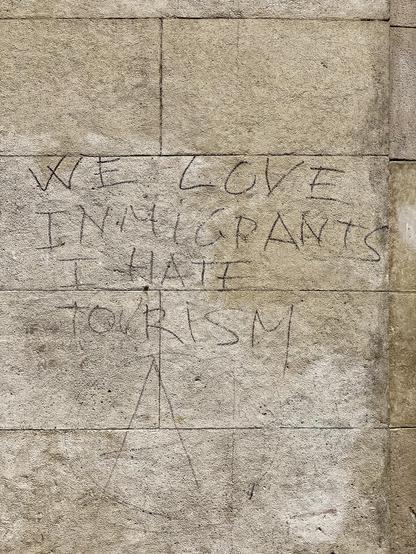 WE LOVE
INMIGRANTS
I HATE
TOURISM